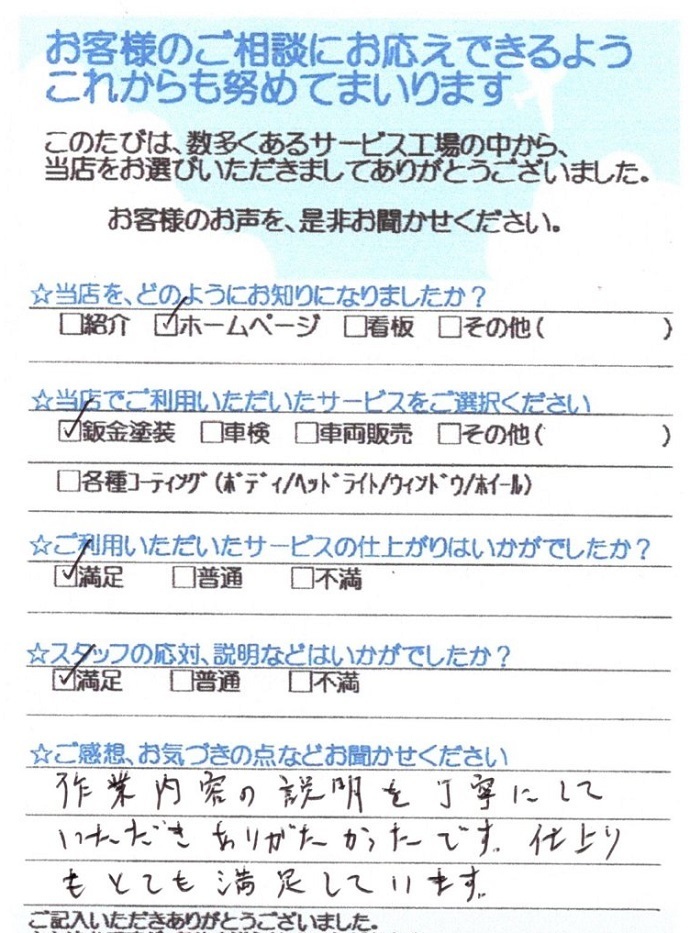 お客様のご相談にお応えできるよう
これからも努めてまいります
このたびは、数多くあるサービス工場の中から、
当店をお選びいただきましてありがとうございました。
お客様のお声を、是非お聞かせください。
☆当店を、どのようにお知りになりましたか？
□紹介 ☑ホームページ □看板 □その他( )
☆当店でご利用いただいたサービスをご選択ください
☑鈑金塗装 □車検 □車両販売 □その他( )
□各種ｺｰﾃｨﾝｸﾞ(ﾎﾞﾃﾞｨ/ﾍｯﾄﾞﾗｲﾄ/ｳｨﾝﾄﾞｳ/ﾎｲｰﾙ)
☆ご利用いただいたサービスの仕上がりはいかがでしたか？
☑満足 □普通 □不満
☆スタッフの応対、説明などはいかがでしたか？
☑満足 □普通 □不満
☆ご感想、お気づきの点などお聞かせください
作業内容の説明を丁寧にして
いただきありがたかったです。仕上り
もとても満足しています。
ご記入いただきありがとうございました。